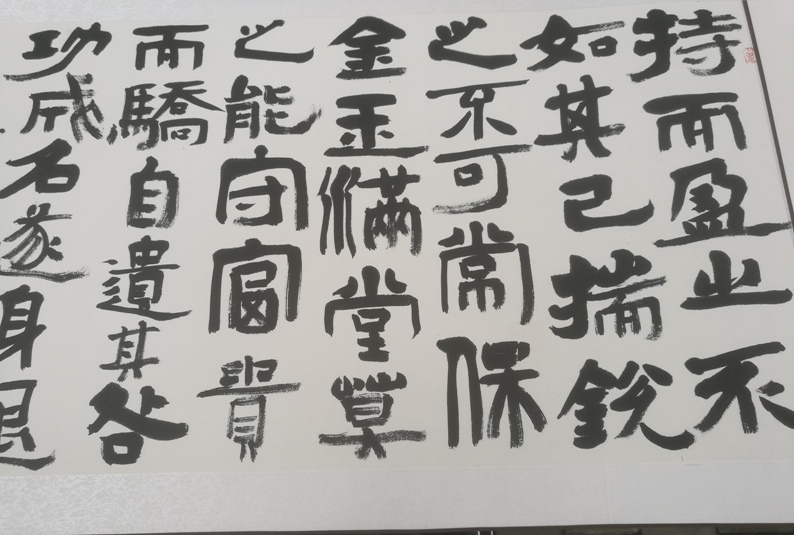 持而盈之不
如其已揣銳
之不可常保
金玉滿堂莫
之能守富貴
而驕自遺其咎
功成名遂身退